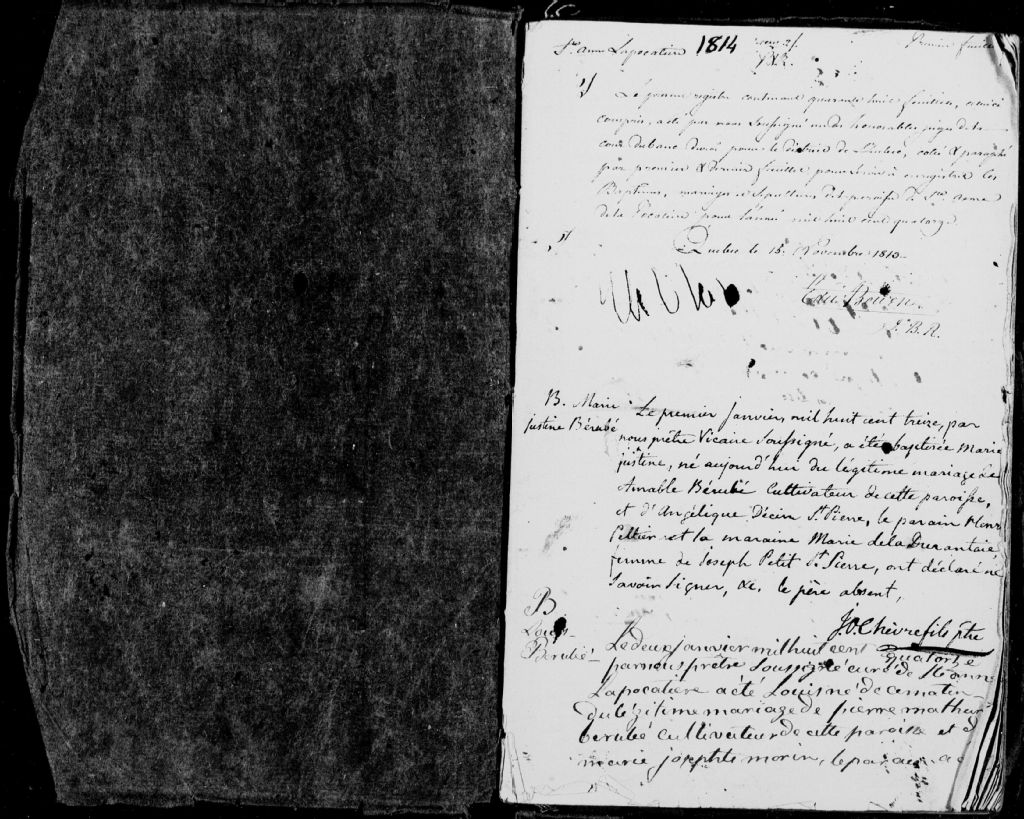 Ste anne Lapocatière 1814
Le présent registre contenant quarante huit feuillets, celui ci
compris, a été par nous Soussigné un des honorables juges de la
cour du banc du roi pour le district de Québec, coté & paraphé
par premier & dernier feuillet pour servir à enregistrer les
Baptêmes, mariages et Sépultures de la paroisse de Ste anne
de la Pocatière pour l'année mil huit cent quatorze
Québec le 15 Novembre 1813
J. B. R.
B. Marie
justine Bérubé
Le premier janvier, mil huit cent treize, par
nous prêtre Vicaire Soussigné, a été baptisée Marie
justine, né aujourd'hui du légitime mariage de
Amable Bérubé Cultivateur de cette paroisse,
et d'Angélique St Pierre, le parain
Peltier et la maraine Marie dela Durantaie
femme de Joseph Petit St Pierre, ont déclaré ne
Savoir Signer, &c. le père absent,
Chèvrefils ptre
B
Louis
Berubé
Le deux janvier mil huit cent quatorze
par nous prêtre Soussigné curé de Ste anne
Lapocatiere a été Louis né de ce matin
du légitime mariage de pierre mathur
berubé cultivateur de cette paroisse et d
marie josephte morin, le parain a